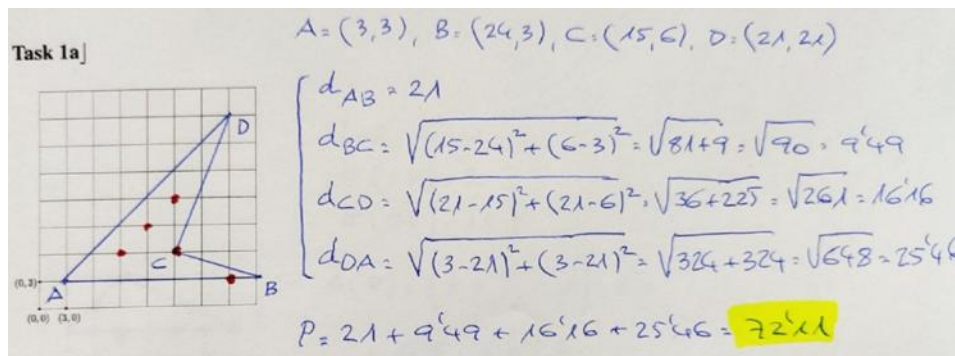 Task 1a]
A = (3,3), B = (24,3), C = (15,6), D = (21,21)
d_AB = 21
d_BC = √((15-24)² + (6-3)²) = √(81+9) = √90 = 9'49
d_CD = √((21-15)² + (21-6)²) = √(36+225) = √261 = 16'16
d_DA = √((3-21)² + (3-21)²) = √(324+324) = √648 = 25'46
P = 21 + 9'49 + 16'16 + 25'46 = 72'11
D
C
(0, 3)
A
B
(0, 0) (3, 0)